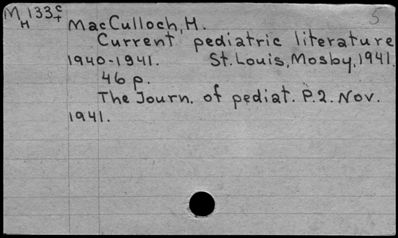 M 133 c+ MacCulloch, H. 5
H
Current pediatric literature
1940-1941. St. Louis, Mosby, 1941.
46 p.
The Journ. of pediat. P. 2. Nov.
1941.